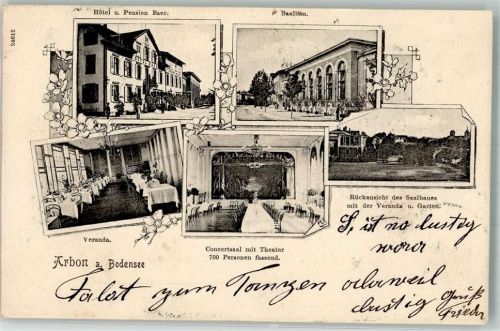 24612
Hôtel u. Pension Baer.
Saalbau.
Veranda.
Concertsaal mit Theater
700 Personen fassend.
Rückansicht des Saalbaues
mit der Veranda u. Garten.
Arbon a. Bodensee
S, ist no lustig
zum Tanzen
lustig Gruß